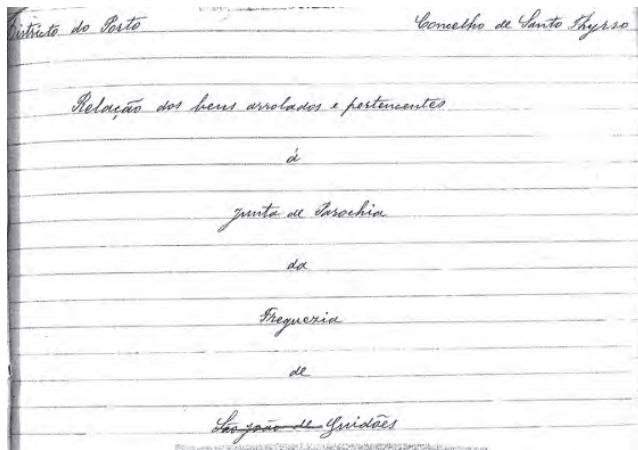 Districto do Porto Concelho de Santo Thyrso
Relação dos bens arrolados e pertencentes
á
Junta de Parochia
da
Freguezia
de
São João de Guidões